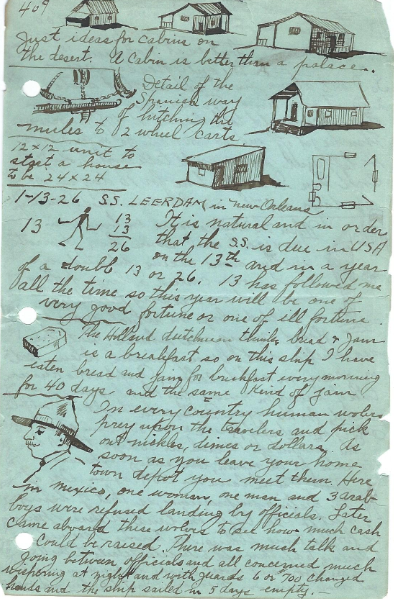 409
Just ideas for cabins on
the desert. A Cabin is better than a palace.
Detail of the
Spanish way
of hitching the
mules to 2 wheel carts
12x12 unit to
start a house
to be 24x24
1-13-26 S.S. LEERDAM in New Orleans
13
13
13
26
It is natural and in order
that the S.S. is due in USA
on the 13th and in a year
of a double 13 or 26. 13 has followed me
all the time so this year will be one of
very good fortune or one of ill fortune.
The Holland dutchmen think bread & Jam
is a breakfast so on this ship I have
eaten bread and Jam for breakfast every morning
for 40 days and the same kind of Jam
In every country human wolves
prey upon the travelers and pick
out nickles, dimes or dollars. As
soon as you leave your home
town depot you meet them. Here
in Mexico, one woman, one man and 3 arab
boys were refused landing by officials. Later
came aboard these wolves to see how much cash
could be raised. There was much talk and
going between officials and all concerned much
wispering at night and with guards 6 or 700 changed
hands and the ship sailed in 5 days empty.-